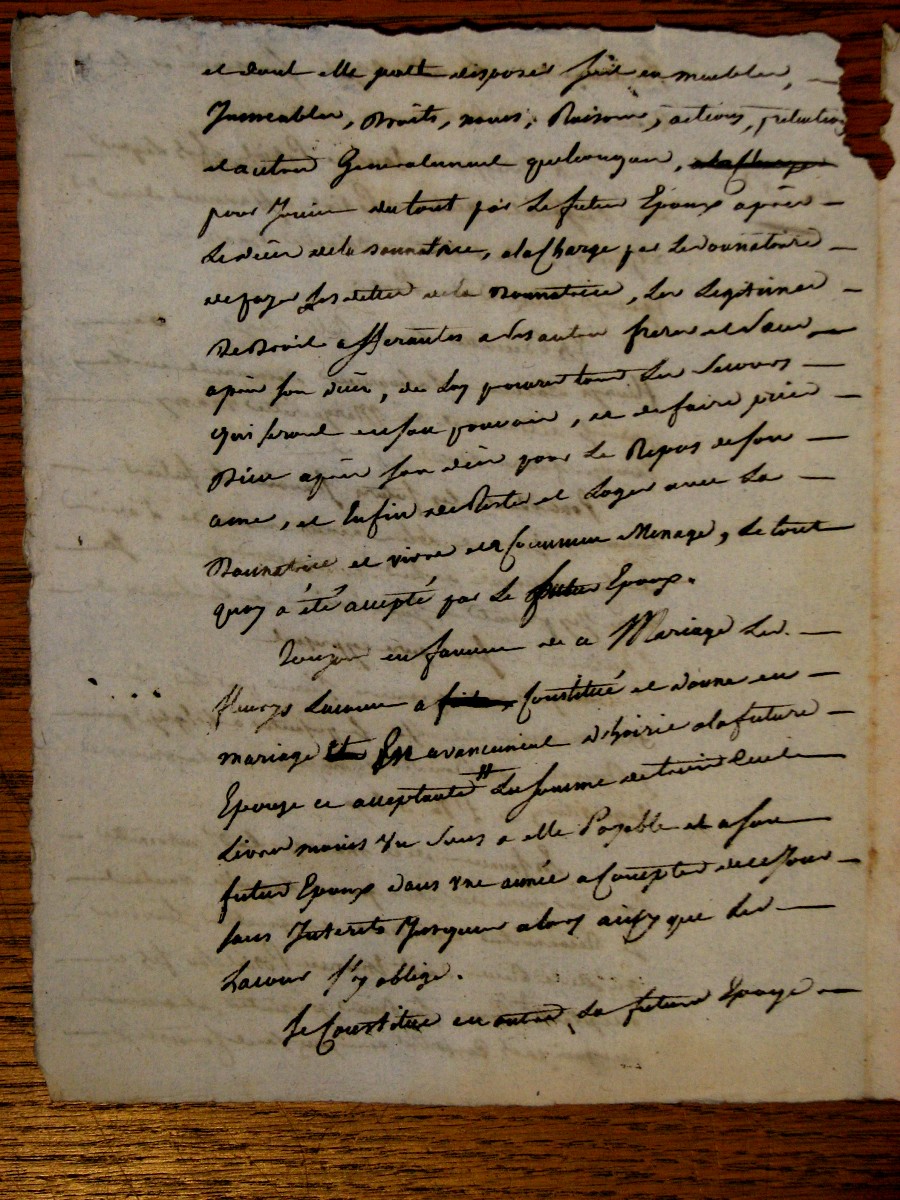 et dont elle peutt disposer soit en meubles,
Immeubles, Droits, noms, Raisons, actions, pretentions
et autres Generalement quelconques, a la Charge
pour Jouir du tout par Le futur Epoux après
Le décès de la donnatrice, a la Charge par Le donnataire
de payer Les dettes de la Donnatrice, Les Legitimes
De Droit afferantes a ses autres freres et Sœurs
après son décès, de Luy procurer tous Les Secours
qui seront en son pouvoir, et de faire prier
Dieu après son décès pour Le Repos de son
ame, et Enfin de Rester et Loger avec La
Donnatrice et vivre en Commun Menage, Le tout
quoy a été accepté par Le futur Epoux.
Toujours en faveur de ce Mariage Led.
fleurys Lacour a Constitué et donne en
mariage En avancement d'hoirie a la future
Epouze ce acceptante # La somme de trois Cent
Livres moins Un Sous a elle Payable et a son
futur Epoux dans Une année a Compter de ce Jour
sans Interets Jusques alors ainsy que Led.
Lacour s'y oblige.
Se Constitue en outre La future Epouze